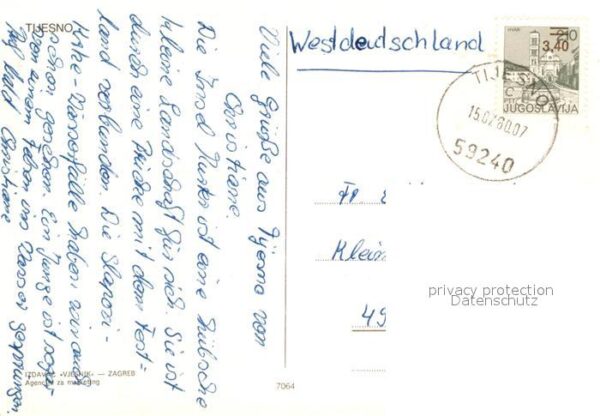 TIJESNO
Viele Grüße aus Tijesno von
Christiane.
Die Insel Murter ist eine hübsche
kleine Landschaft für sich. Sie ist
durch eine Brücke mit dem Fest=
land verbunden. Die Slapovi-
Krka-Wasserfälle haben wir auch
schon gesehen. Ein Junge ist sogar
von einem Felsen ins Wasser gesprungen
Auf bald Christiane
IZDAVAČ «VJESNIK» — ZAGREB
Agencija za marketing
7064
Westdeutschland
HVAR
2.10
3,40
PTT
JUGOSLAVIJA
TIJESNO
15.07.80.07
59240
Klein
49
privacy protection
Datenschutz